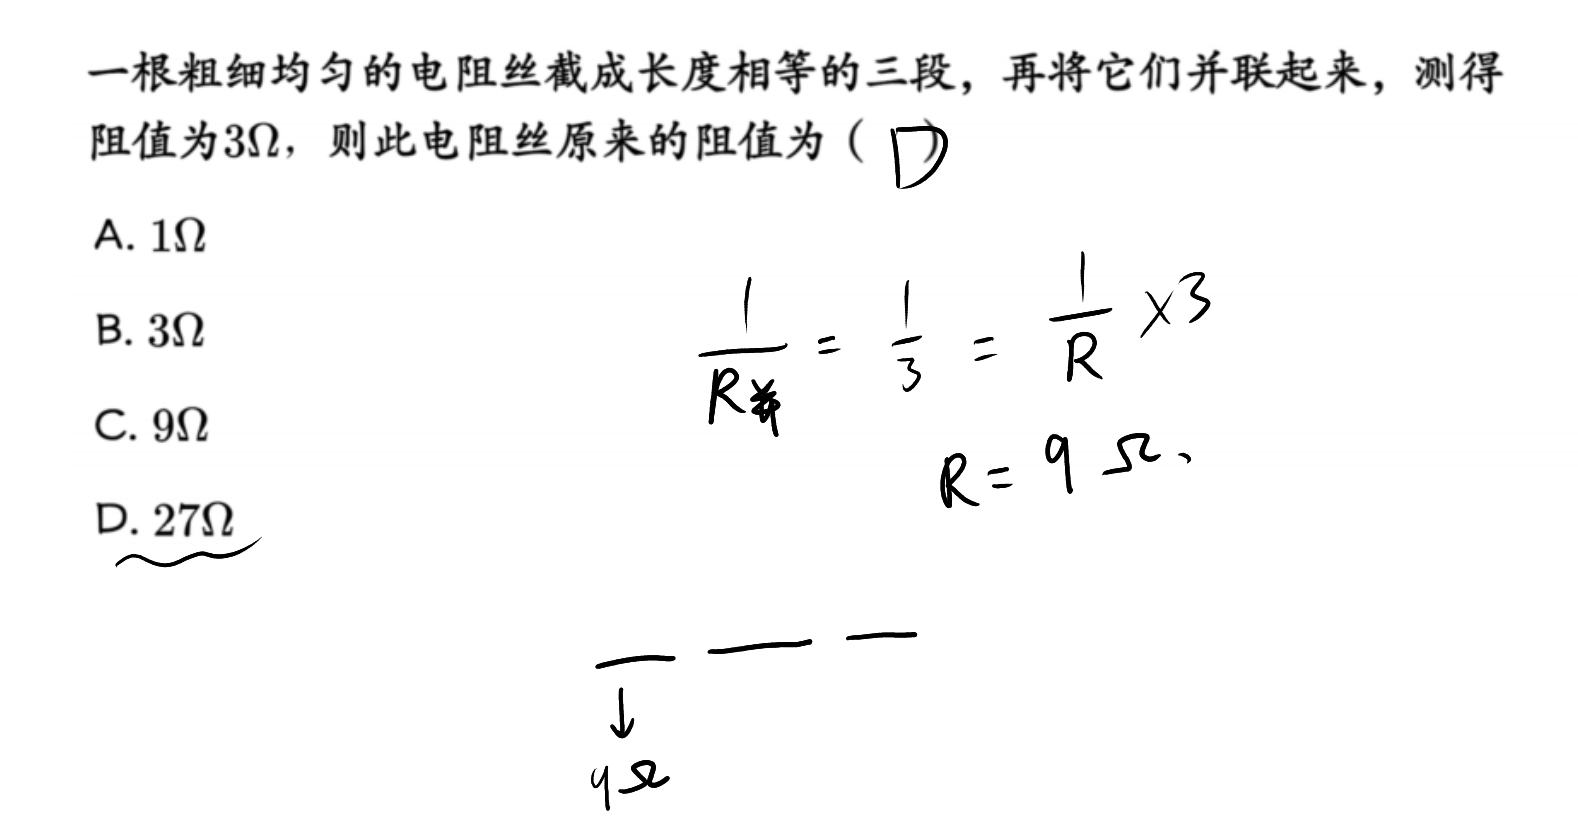 一根粗细均匀的电阻丝截成长度相等的三段，再将它们并联起来，测得
阻值为3Ω，则此电阻丝原来的阻值为（ D ）
A. 1Ω
B. 3Ω
C. 9Ω
D. 27Ω
1/R并 = 1/3 = 1/R ×3
R = 9 Ω、
9Ω